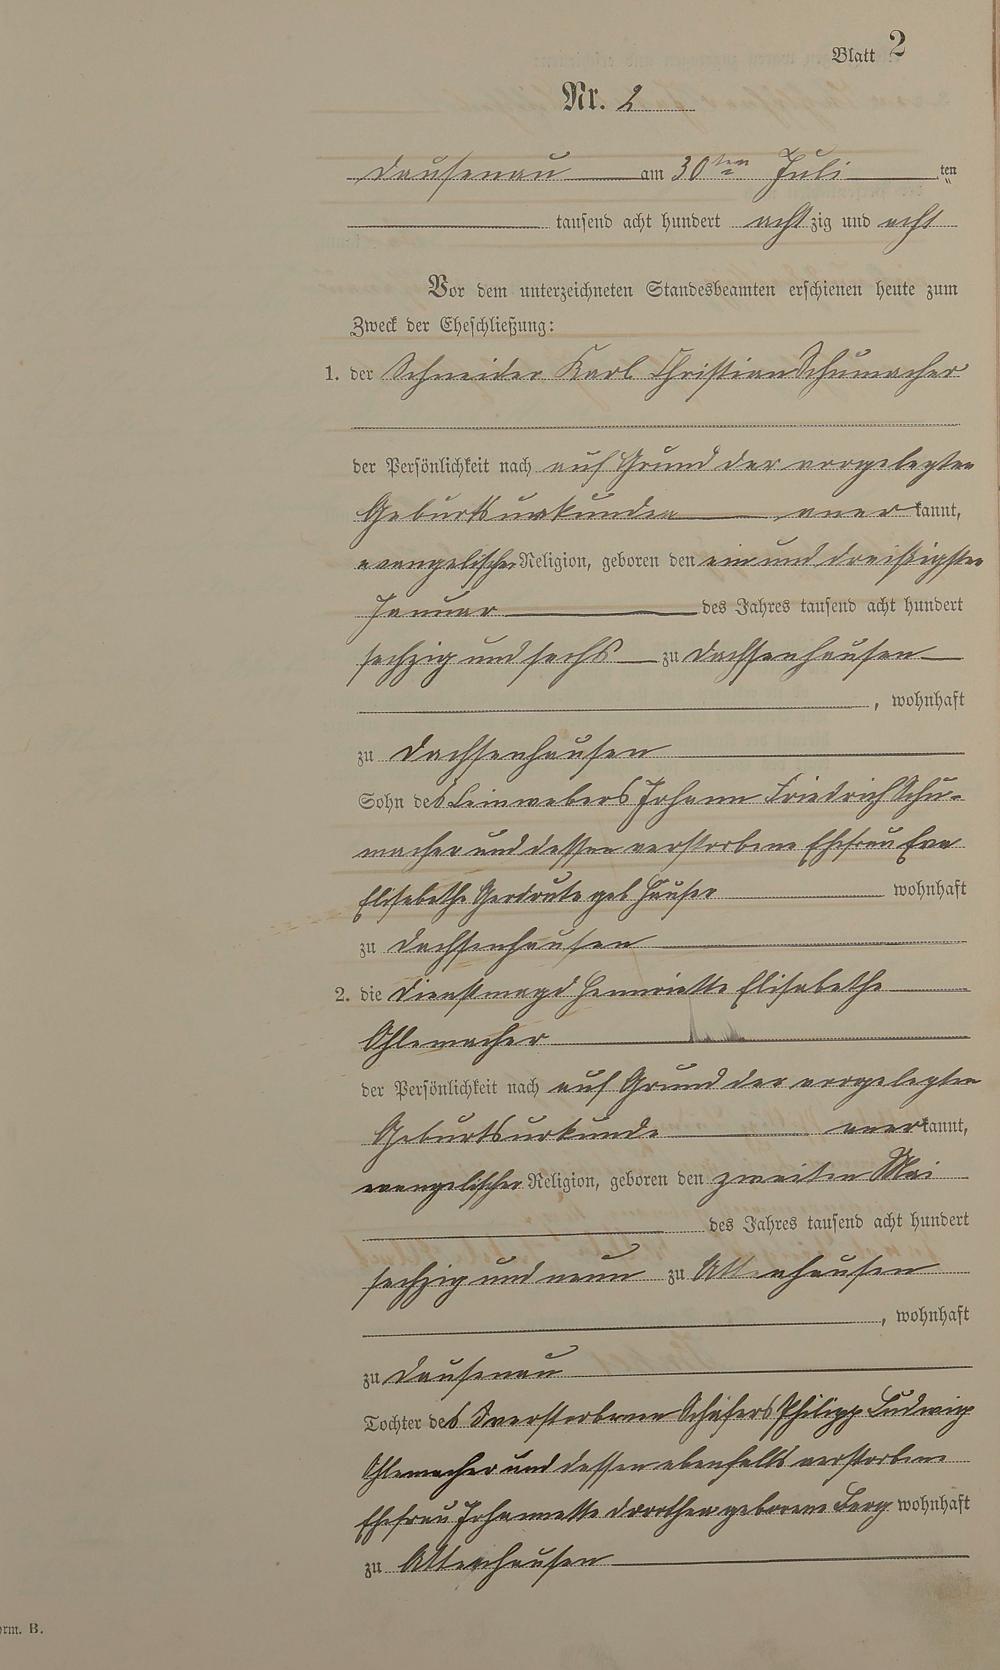 Blatt 2
Nr. 2
Dausenau am 30ten Juli ten
tausend acht hundert achtzig und acht
Vor dem unterzeichneten Standesbeamten erschienen heute zum
Zweck der Eheschließung:
1. der Schneider Karl Christian Schumacher
der Persönlichkeit nach auf Grund der vorgelegten
Geburtsurkunden anerkannt,
evangelischer Religion, geboren den ein und dreißigsten
Januar des Jahres tausend acht hundert
sechzig und sechs zu Dachsenhausen
, wohnhaft
zu Dachsenhausen
Sohn des Leinwebers Johann Friedrich Schu-
macher und dessen verstorbene Ehefrau Eva
Elisabethe Gerdrute geb Hauser wohnhaft
zu Dachsenhausen
2. die Dienstmagd Henriette Elisabethe
Ohlemacher
der Persönlichkeit nach auf Grund der vorgelegten
Geburtsurkunde anerkannt,
evangelischer Religion, geboren den zweiten Mai
des Jahres tausend acht hundert
sechzig und neun zu Attenhausen
, wohnhaft
zu Dausenau
Tochter des verstorbenen Schäfers Philipp Ludwig
Ohlemacher und dessen ebenfalls verstorbene
Ehefrau Johannette Dorothea geborene Berg wohnhaft
zu Attenhausen
orm. B.